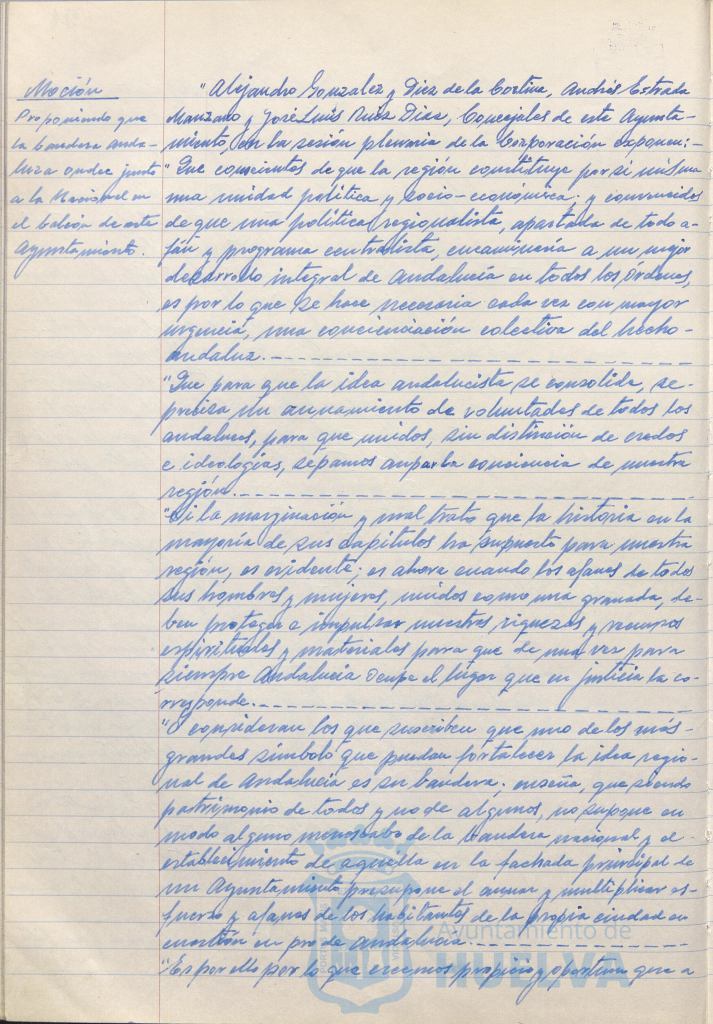 Moción
Proponiendo que
la bandera anda-
luza ondee junto
a la Nacional en
el balcón de este
Ayuntamiento.
"Alejandro Gonzalez y Diez de la Cortina, Andrés Estrada
Manzano y José Luis Ruiz Diaz, Concejales de este Ayunta-
miento, en la sesión plenaria de la Corporación exponen:-
"Que conscientes de que la región constituye por sí misma
una unidad política y socio-económica; y convencidos
de que una política regionalista, apartada de todo a-
fán y programa centralista, encaminaría a un mejor
desarrollo integral de Andalucía en todos los órdenes,
es por lo que se hace necesaria cada vez con mayor
urgencia, una concienciación colectiva del hecho-
andaluz.
"Que para que la idea andalucista se consolida, se-
precisa un aunamiento de voluntades de todos los
andaluces, para que unidos, sin distinción de credos
e ideologías, sepamos aupar la conciencia de nuestra
región.
"Si la marginación y mal trato que la historia en la
mayoría de sus capítulos ha supuesto para nuestra
región, es evidente; es ahora cuando los afanes de todos
sus hombres y mujeres, unidos como una granada, de-
ben proteger e impulsar nuestras riquezas y recursos
espirituales y materiales para que de una vez para
siempre Andalucía ocupe el lugar que en justicia la co-
rresponde.
"Y consideran los que suscriben que uno de los más-
grandes símbolo que puedan fortalecer la idea regio-
nal de Andalucía es su bandera; enseña, que siendo
patrimonio de todos y no de algunos, no supone en
modo alguno menoscabo de la bandera nacional y el-
establecimiento de aquella en la fachada principal de
un Ayuntamiento presupone el aunar y multiplicar es-
fuerzo y afanes de los habitantes de la propia ciudad en
cuestión en pro de Andalucía.
"Es por ello por lo que creemos propicio y oportuno que a
Ayuntamiento de
HUELVA